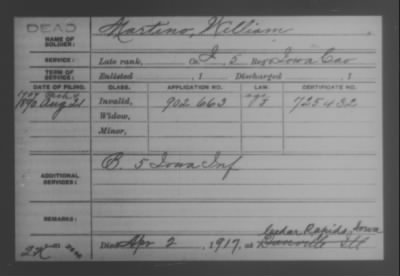 DEAD
NAME OF SOLDIER: Martino, William
SERVICE: Late rank, Co. I, 5 Reg't Iowa Cav
TERM OF SERVICE: Enlisted , 1 Discharged , 1
DATE OF FILING. CLASS. APPLICATION NO. LAW. CERTIFICATE NO.
1890 Aug 21 Invalid, 902 663 725432
Widow,
Minor,
ADDITIONAL SERVICES: B. 5 Iowa Inf
REMARKS:
Cedar Rapids, Iowa
Died Apr 2, 1917, at Danville Ill